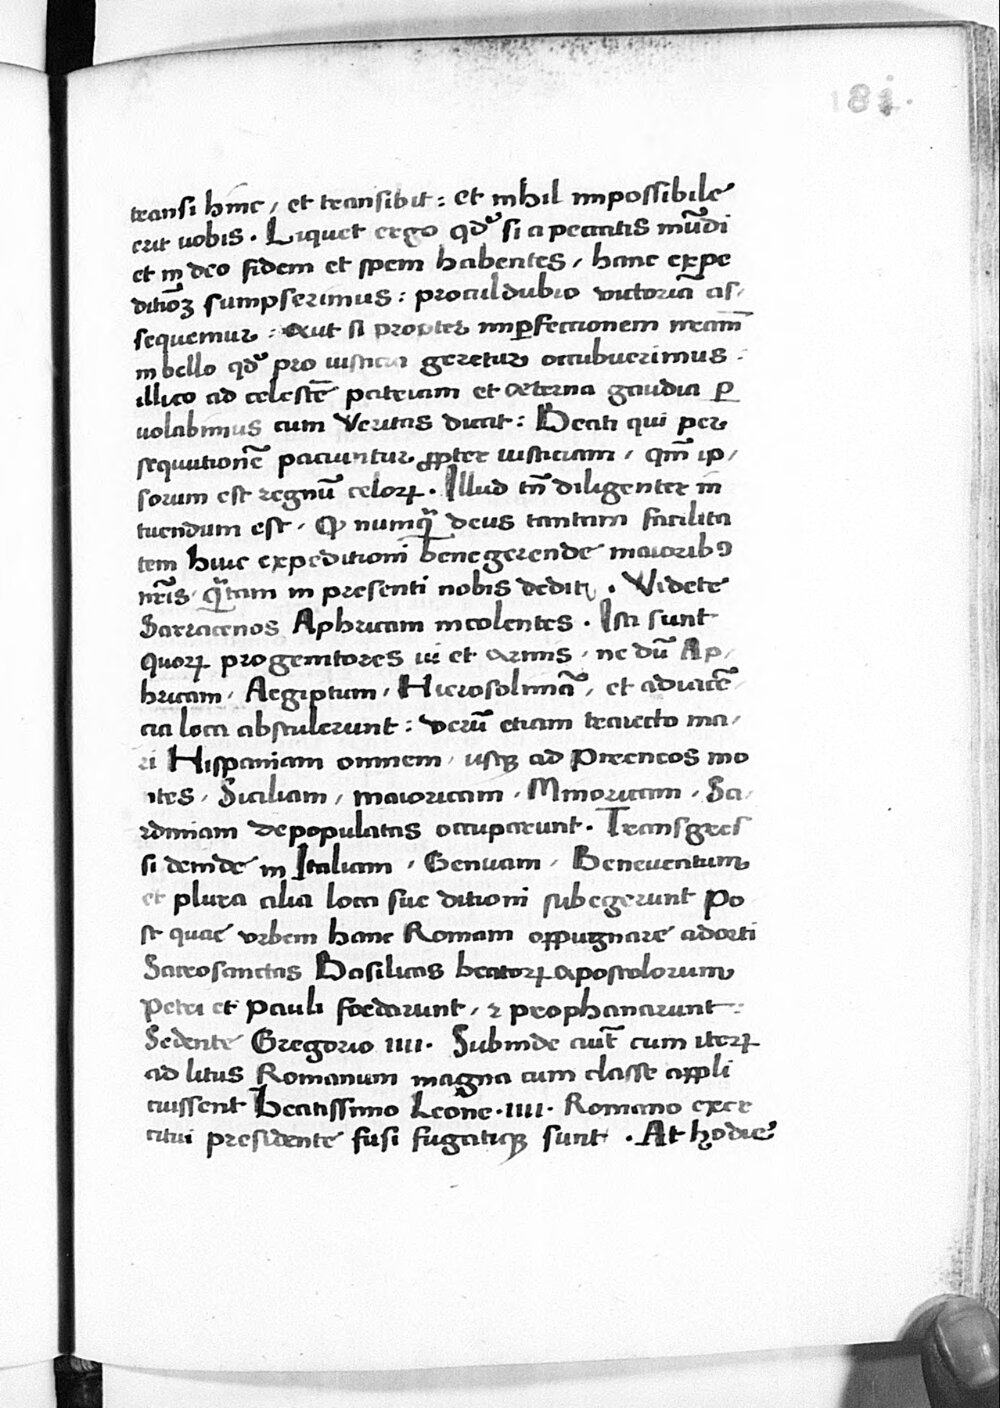 181.
transi hinc, et transibit: et nihil impossibile
erit uobis. Liquet ergo qđ si a peccatis mūdi
et in deo fidem et spem habentes, hanc expe
ditiōꝫ sumpserimus: proculdubio uictoriā as,
sequemur: Aut si propter imꝑfectionem nr̄am
in bello qđ pro iusticia geretur occubuerimus:
illico ad celestē patriam et aeterna gaudia ꝑ
uolabimus cum Veritas dicat: Beati qui per
sequutionē paciuntur ꝓpter iusticiam, qm̄ ip,
sorum est regnū celoꝝ. Illud tn̄ diligenter in
tuendum est, ꝙ numꝗ̄ deus tantam facilita
tem huic expeditioni bene gerende maioribꝰ
nr̄is, ꝗ̄tam in presenti nobis dedit. Videte
Sarracenos Aphricam incolentes. Isti sunt
quoꝝ progenitores ui et armis, ne dū Ap,
hricam, Aegiptum, Hierosolimā, et adiacē
cia loca abstulerunt: verū etiam traiecto ma,
ri Hispaniam omnem, usqꝫ ad Pireneos mo
ntes, Siciliam, maioricam, Minoricam, Sa,
rdiniam depopulatas occuparunt. Transgres
si deinde in Italiam, Genuam, Beneuentum
et plura alia loca sue ditioni subegerunt Po
st quae vrbem hanc Romam oppugnare adorti
Sacrosanctas Basilicas beatoꝝ apostolorum
Petri et Pauli foedarunt, ⁊ prophanarunt:
Sedente Gregorio IIII. Subinde aut̄ cum iteꝝ
ad litus Romanum magna cum classe appli
cuissent Beatissimo Leone .IIII. Romano exer
citui presidente fusi fugatiqꝫ sunt. At hodie